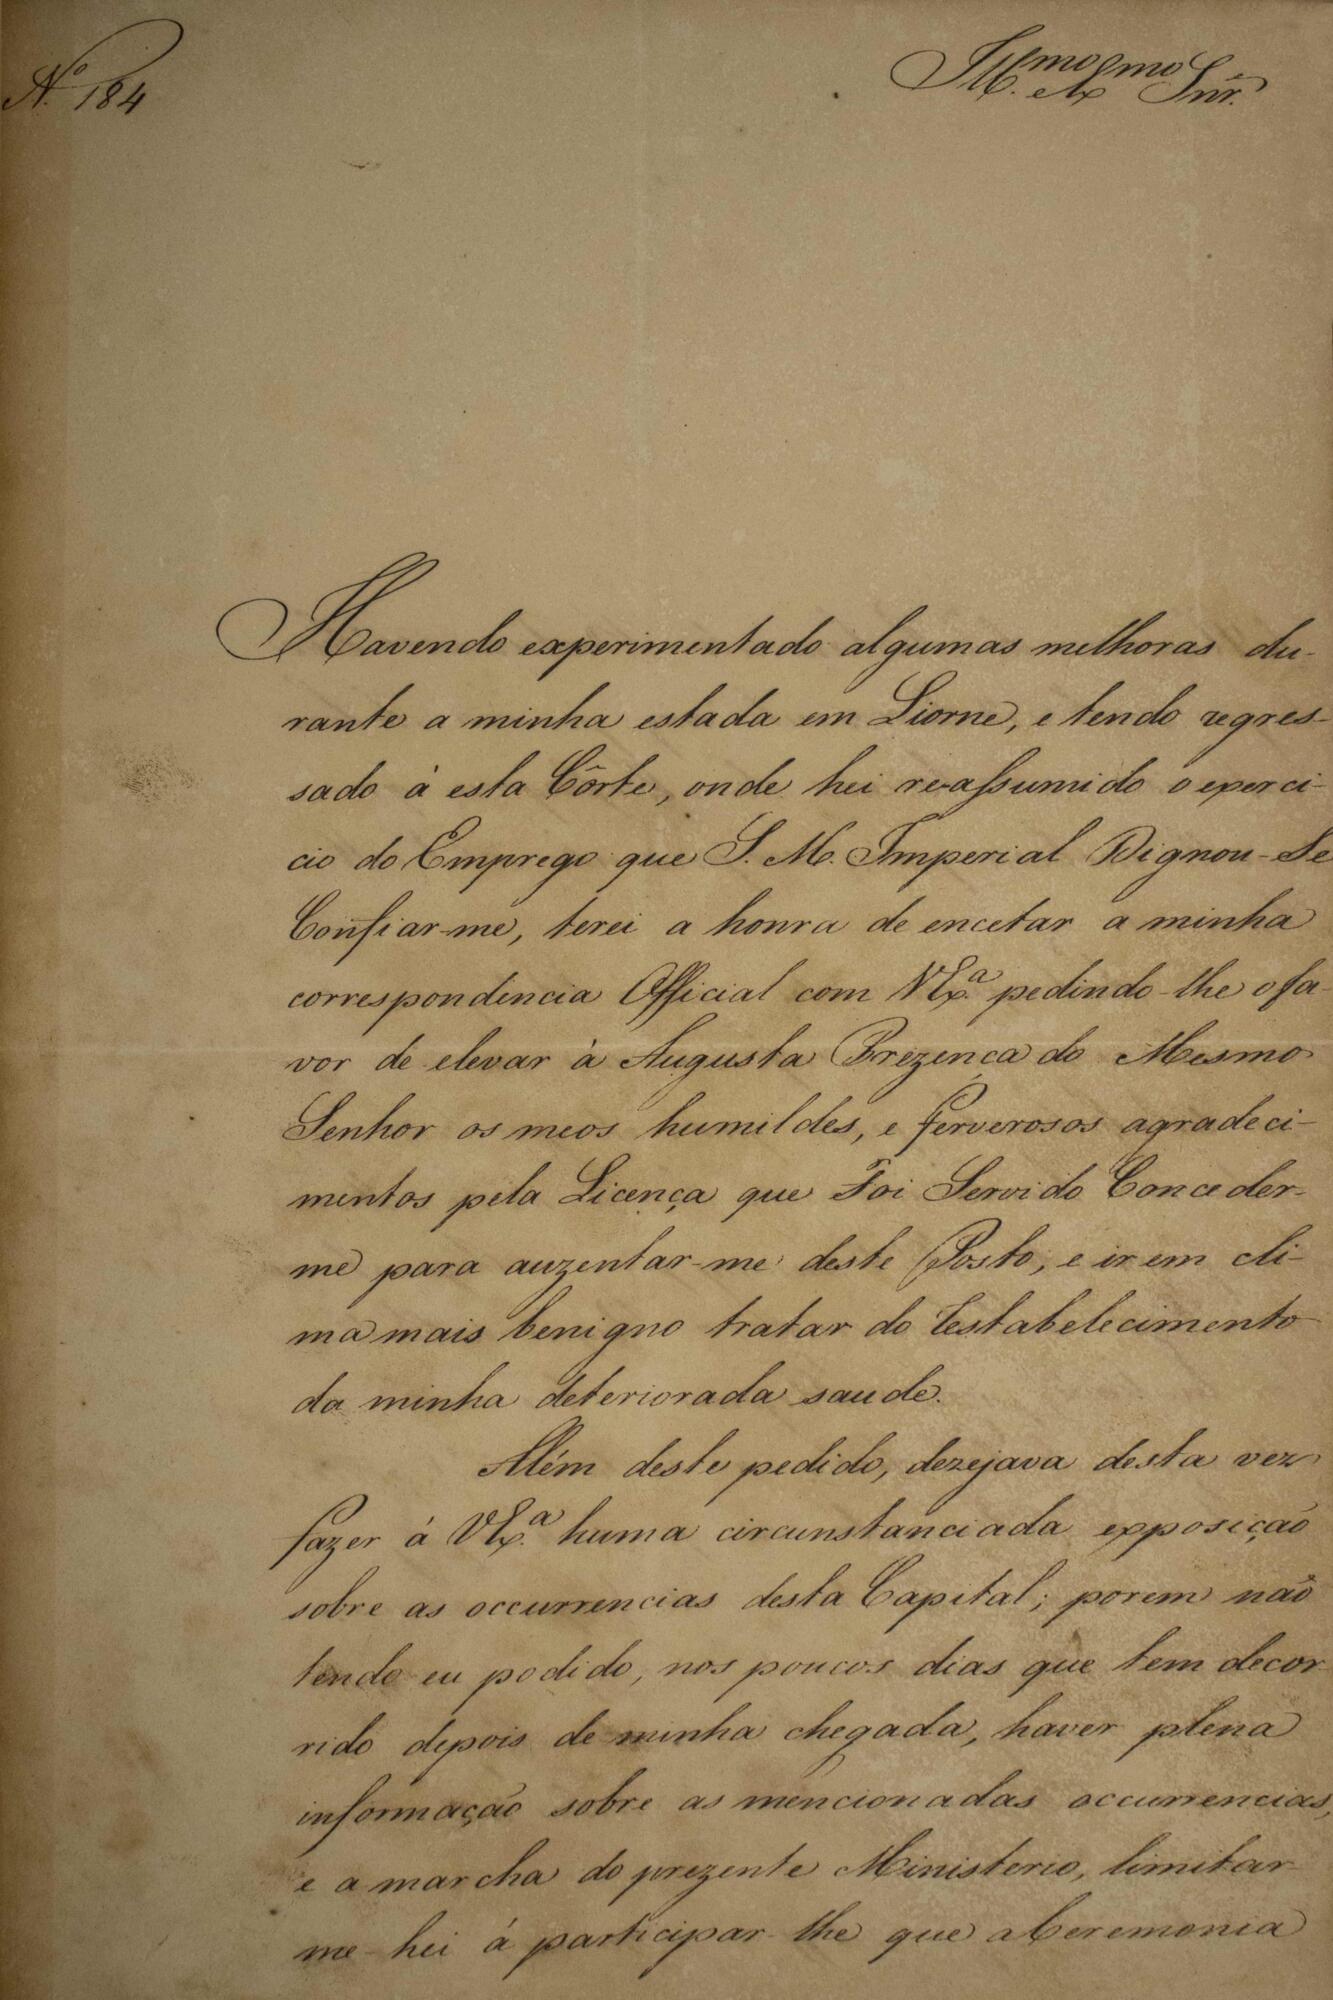 Nº 184
Illmo. e Exmo. Snr.
Havendo experimentado algumas melhoras du-
rante a minha estada em Liorne, e tendo regres-
sado à esta Côrte, onde hei reassumido o exerci-
cio do Emprego que S. M. Imperial Dignou-Se
Confiar-me, terei a honra de encetar a minha
correspondencia Official com VExª. pedindo-lhe o fa-
vor de elevar à Augusta Prezença do Mesmo
Senhor os meos humildes, e ferverosos agradeci-
mentos pela Licença que Foi Servido Conceder-
me para auzentar-me deste Posto, e ir em cli-
ma mais benigno tratar do restabelecimento
da minha deteriorada saude.
Além deste pedido, dezejava desta vez
fazer á VExª. huma circunstanciada exposição
sobre as occurrencias desta Capital; porem não
tendo eu podido, nos poucos dias que tem decor
rido depois de minha chegada, haver plena
informação sobre as mencionadas occurrencias,
e a marcha do prezente Ministerio, limitar-
me-hei á participar-lhe que a Ceremonia